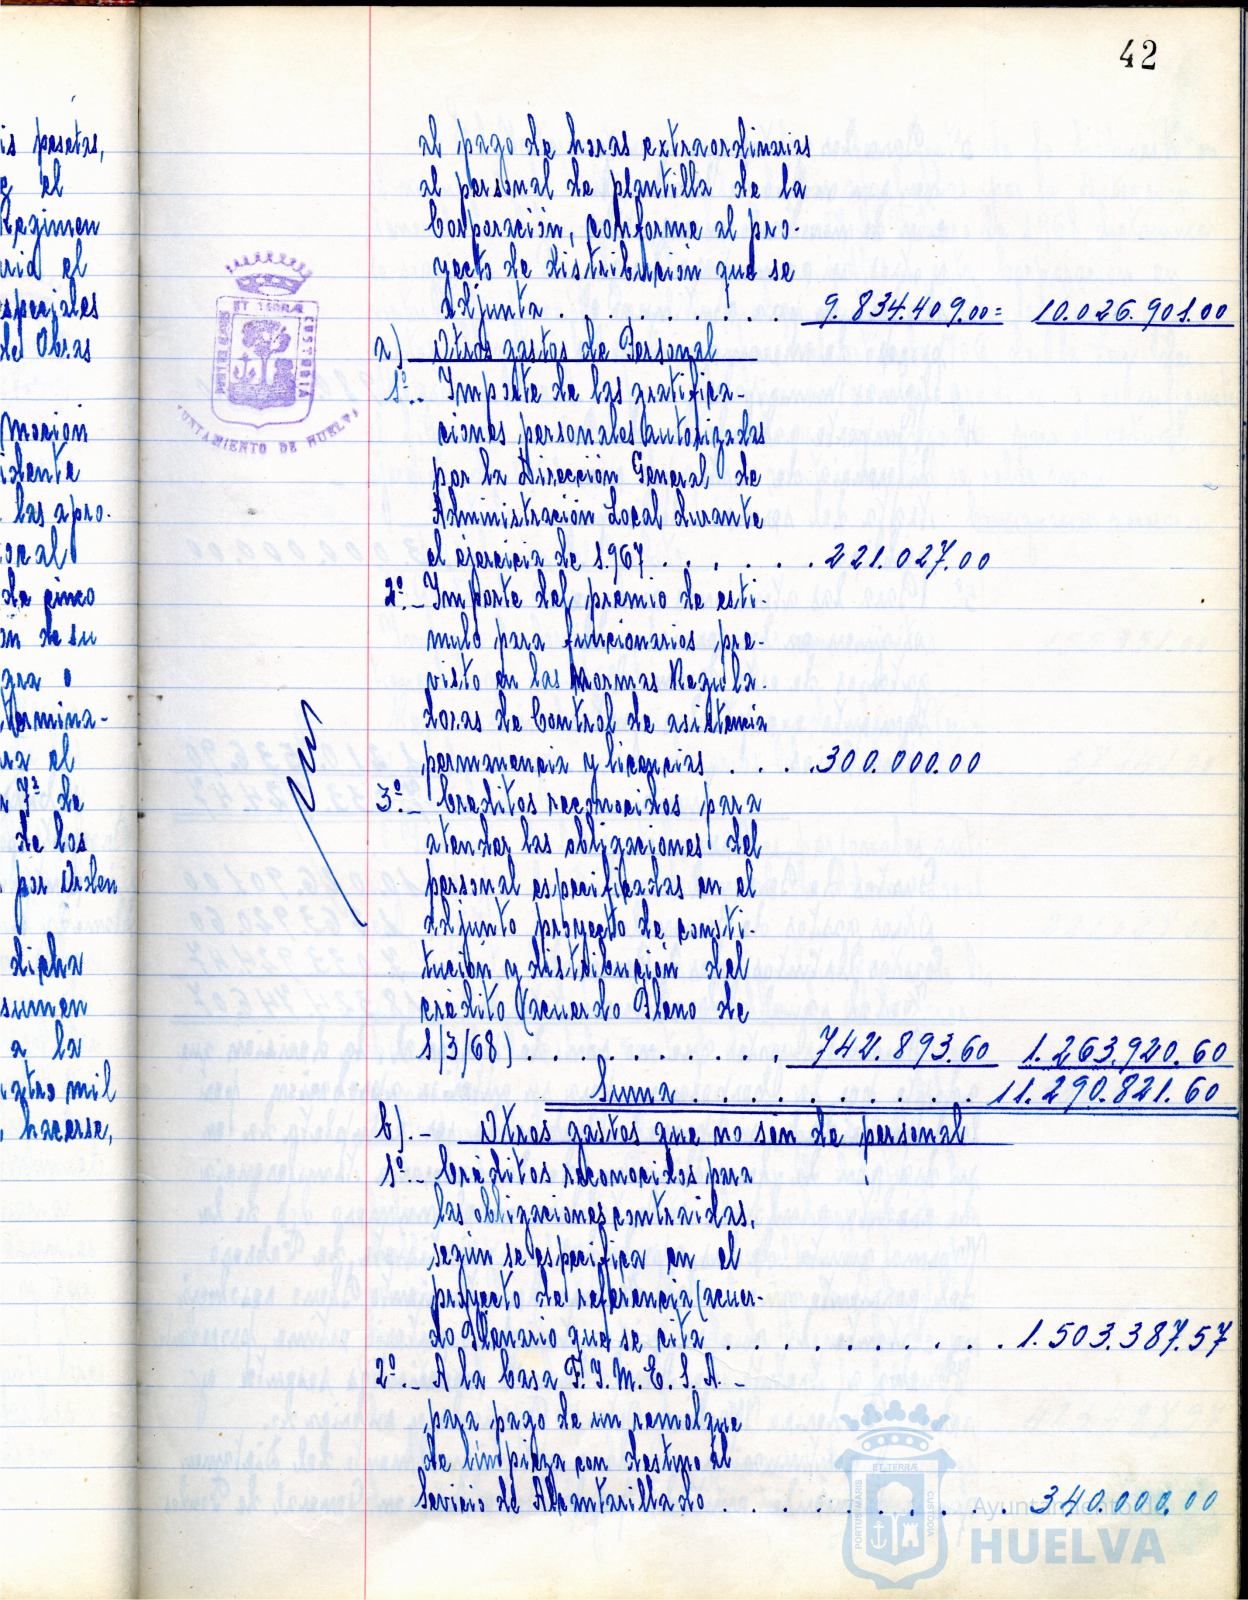 42
is pesetas,
el
Regimen
el
speciales
del Obras
Moción
idente
las apro-
ocal
de cinco
ón de su
o
termina-
el
7ª de
de los
por Orden
dicha
sumen
a la
mil
hacerse,
al pago de horas extraordinarias
al personal de plantilla de la
Corporación, conforme al pro-
yecto de distribución que se
adjunta . . . . . . . . . . 9.834.409.00= 10.026.901.00
a) Otros gastos de Personal
1º.- Importe de las gratifica-
ciones personales autorizadas
por la Dirección General de
Administración Local durante
el ejercicio de 1.967 . . . . . . 221.027.00
2º.- Importe del premio de estí-
mulo para funcionarios pre-
visto en las Normas Regula-
doras de Control de asistencia
permanencia y licencias . . . . 300.000.00
3º.- Creditos reconocidos para
atender las obligaciones del
personal especificadas en el
adjunto proyecto de consti-
tución y distribución del
crédito (acuerdo Pleno de
1/3/68) . . . . . . . . . . 742.893.60 1.263.920.60
Suma . . . . . . . . . . 11.290.821.60
b).- Otros gastos que no son de personal
1º.- Créditos reconocidos para
las obligaciones contraidas,
según se especifica en el
proyecto de referencia (acuer-
do Plenario que se cita . . . . . . . . . . 1.503.387.57
2º.- A la Casa F.I.M.E.S.A. -
para pago de un remolque
de limpieza con destino al
Sevicio de Alcantarillado . . . . . . . . . . 340.000.00
ET TERRÆ
PORTUS MARIS
CUSTODIA
AYUNTAMIENTO DE HUELVA
ET TERRÆ
PORTUS MARIS
CUSTODIA
Ayuntamiento de
HUELVA